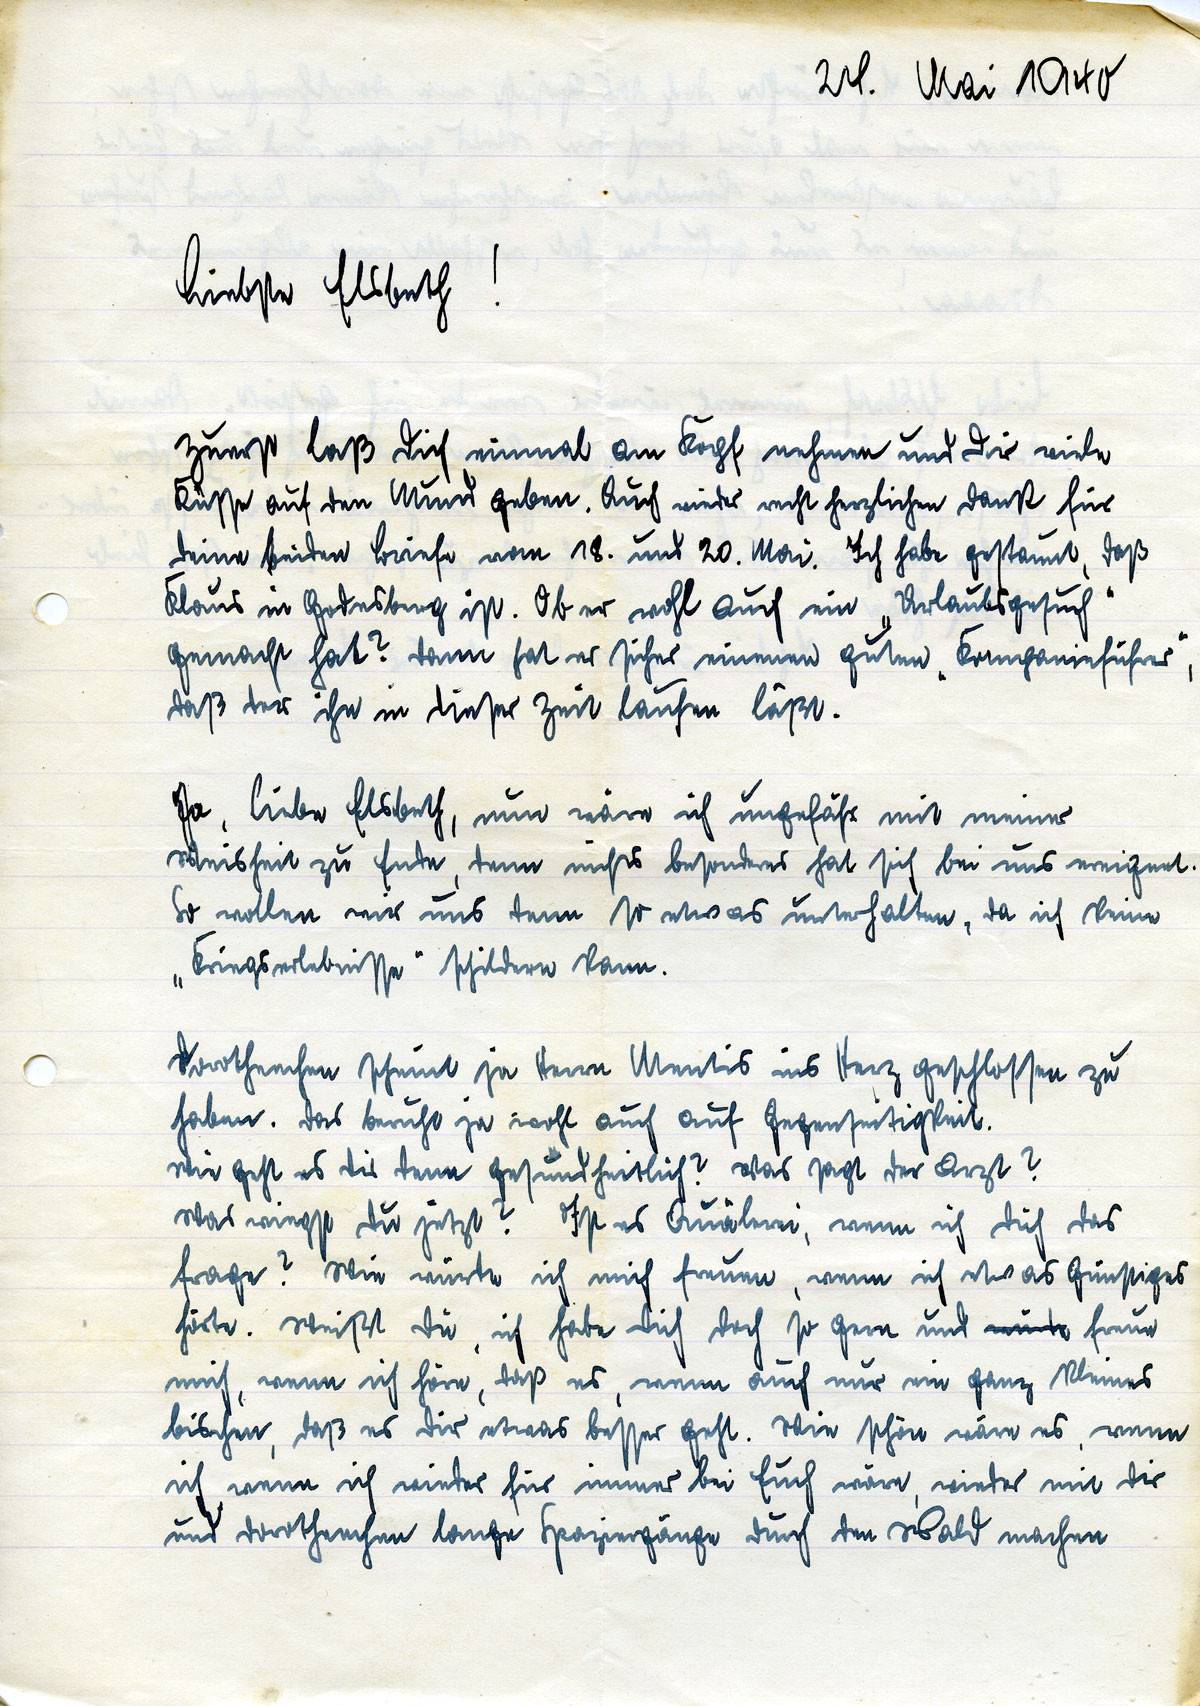 24. Mai 1940
Liebste Elsbeth!
Zuerst laß Dich einmal am Kopf nehmen und Dir viele
Küsse auf den Mund geben. Auch wieder recht herzlichen Dank für
deine beiden Briefe vom 18. und 20. Mai. Ich habe gestaunt, daß
Klaus in Godesberg ist. Ob er wohl auch ein „Urlaubsgesuch“
gemacht hat? Dann hat er sicher einenen guten „Kompanieführer“,
daß der ihn in dieser Zeit laufen läßt.
Ja, liebe Elsbeth, nun wäre ich ungefähr mit meiner
Weisheit zu Ende, denn nichts besonderes hat sich bei uns ereignet.
So wollen wir uns denn so etwas unterhalten, da ich keine
„Kriegserlebnisse“ schildern kann.
Dorotheechen scheint ja Herrn Mentis ins Herz geschlossen zu
haben. Das beruht ja wohl auch auf Gegenseitigkeit.
Wie geht es dir denn gesundheitlich? Was sagt der Arzt?
Was wiegst Du jetzt? Ist es Quälerei, wenn ich Dich das
frage? Wie würde ich mich freuen, wenn ich etwas Günstiges
hörte. Weißt Du, ich habe Dich doch so gern und freue
mich, wenn ich höre, daß es, wenn auch nur ein ganz kleines
bischen, daß es Dir etwas besser geht. Wie schön wäre es, wenn
ich wenn ich wieder für immer bei Euch wäre, wieder mit Dir
und Dorotheechen lange Spaziergänge durch den Wald machen